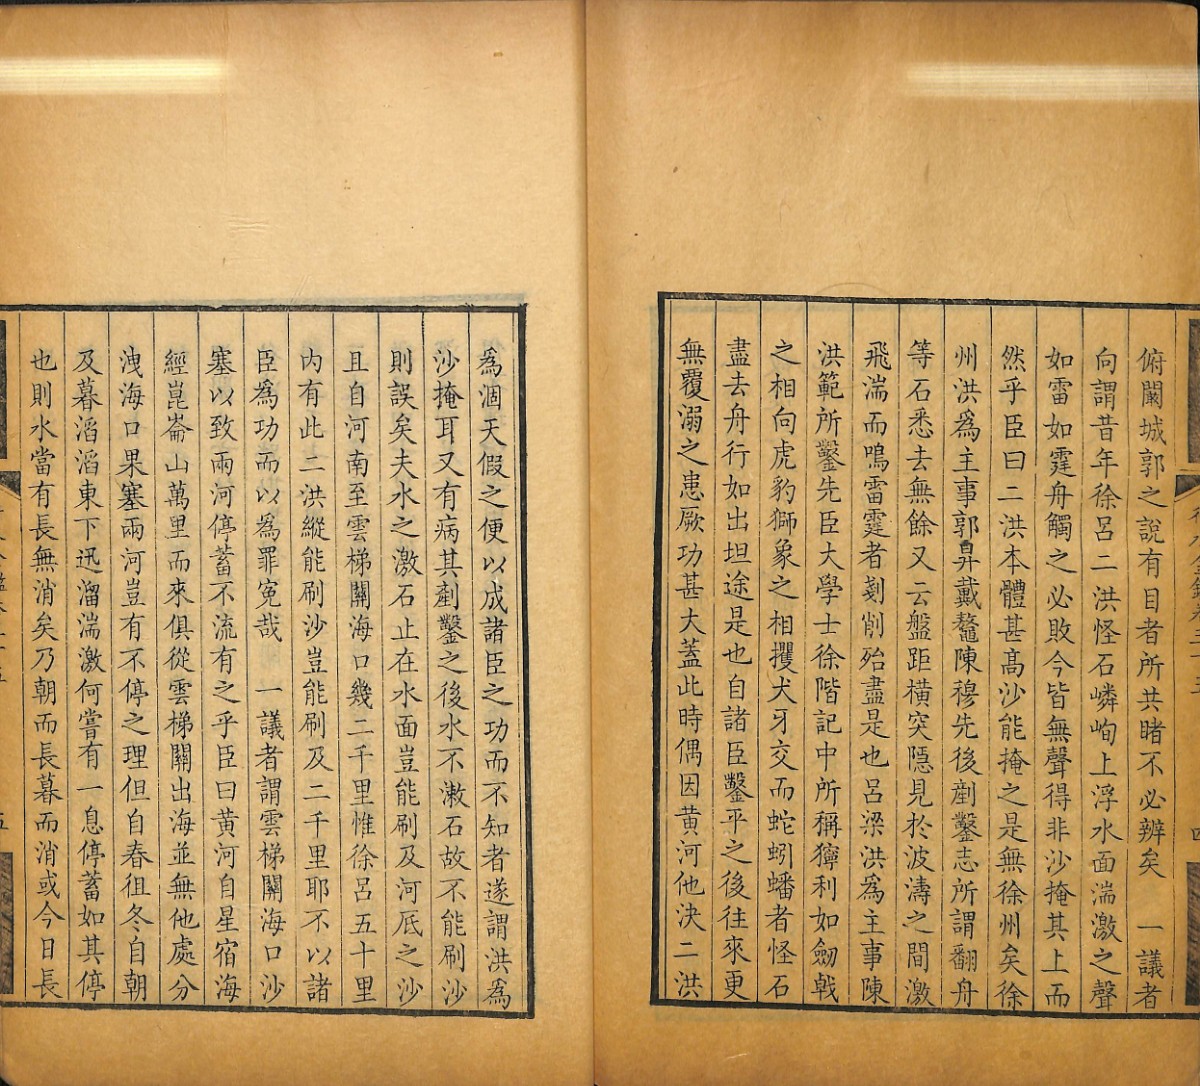 俯闞城郭之説有目者所共睹不必辨矣　一議者
向謂昔年徐呂二洪怪石嶙峋上浮水面湍激之聲
如雷如霆舟觸之必敗今皆無聲得非沙掩其上而
然乎臣曰二洪本體甚高沙能掩之是無徐州矣徐
州洪為主事郭昇戴鰲陳穆先後剷鑿志所謂翻舟
等石悉去無餘又云盤距橫突隱見於波濤之間激
飛湍而鳴雷霆者剗削殆盡是也呂梁洪為主事陳
洪範所鑿先臣大學士徐階記中所稱獰利如劒戟
之相向虎豹獅象之相攫犬牙交而蛇蚓蟠者怪石
盡去舟行如出坦途是也自諸臣鑿平之後往來更
無覆溺之患厥功甚大蓋此時偶因黄河他決二洪
為涸天假之便以成諸臣之功而不知者遂謂洪為
沙掩耳又有病其剷鑿之後水不漱石故不能刷沙
則誤矣夫水之激石止在水面豈能刷及河底之沙
且自河南至雲梯關海口幾二千里惟徐呂五十里
内有此二洪縱能刷沙豈能刷及二千里耶不以諸
臣為功而以為罪寃哉　一議者謂雲梯關海口沙
塞以致兩河停蓄不流有之乎臣曰黄河自星宿海
經崑崙山萬里而來俱從雲梯關出海並無他處分
洩海口果塞兩河豈有不停之理但自春徂冬自朝
及暮滔滔東下迅溜湍激何嘗有一息停蓄如其停
也則水當有長無消矣乃朝而長暮而消或今日長